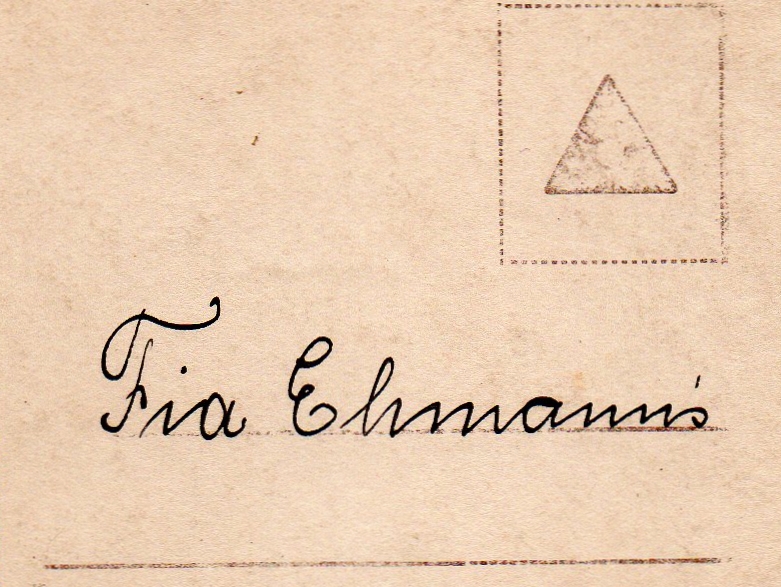 Fia Ehmann's